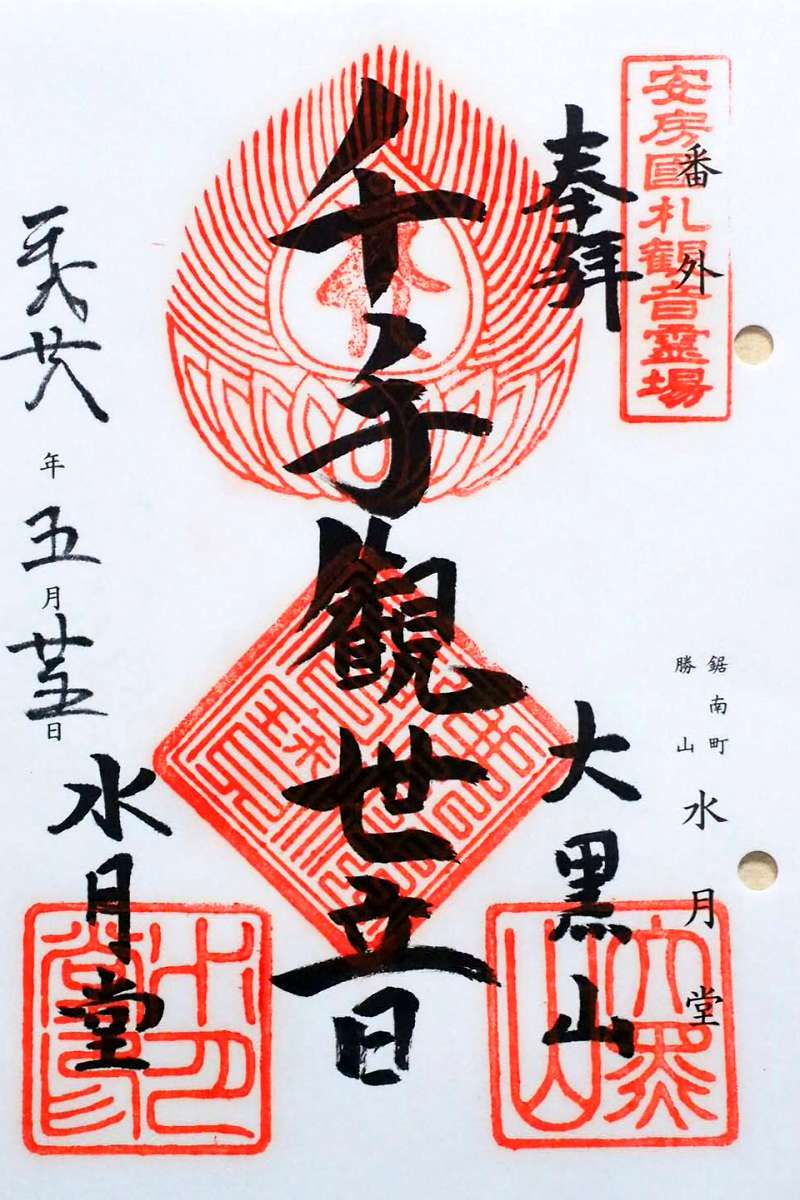 安房國札観音霊場
番外
鋸南町
勝山
水月堂
奉拝
大黒山
千手観世音
水月堂
平成廿八年五月廿五日
大黒山